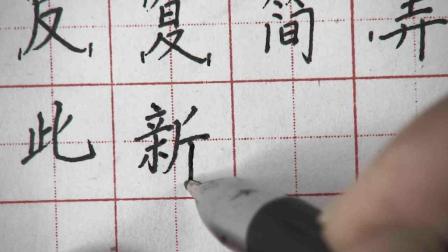 反复简弄
此新